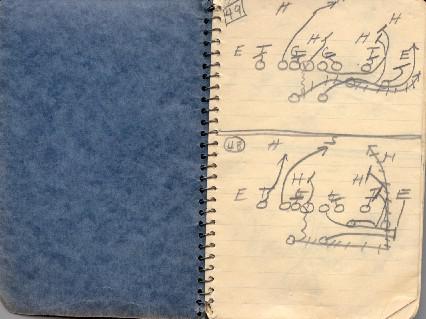 49
H
H
H
E T G G T E
48
H S H
H H
E T E E T E